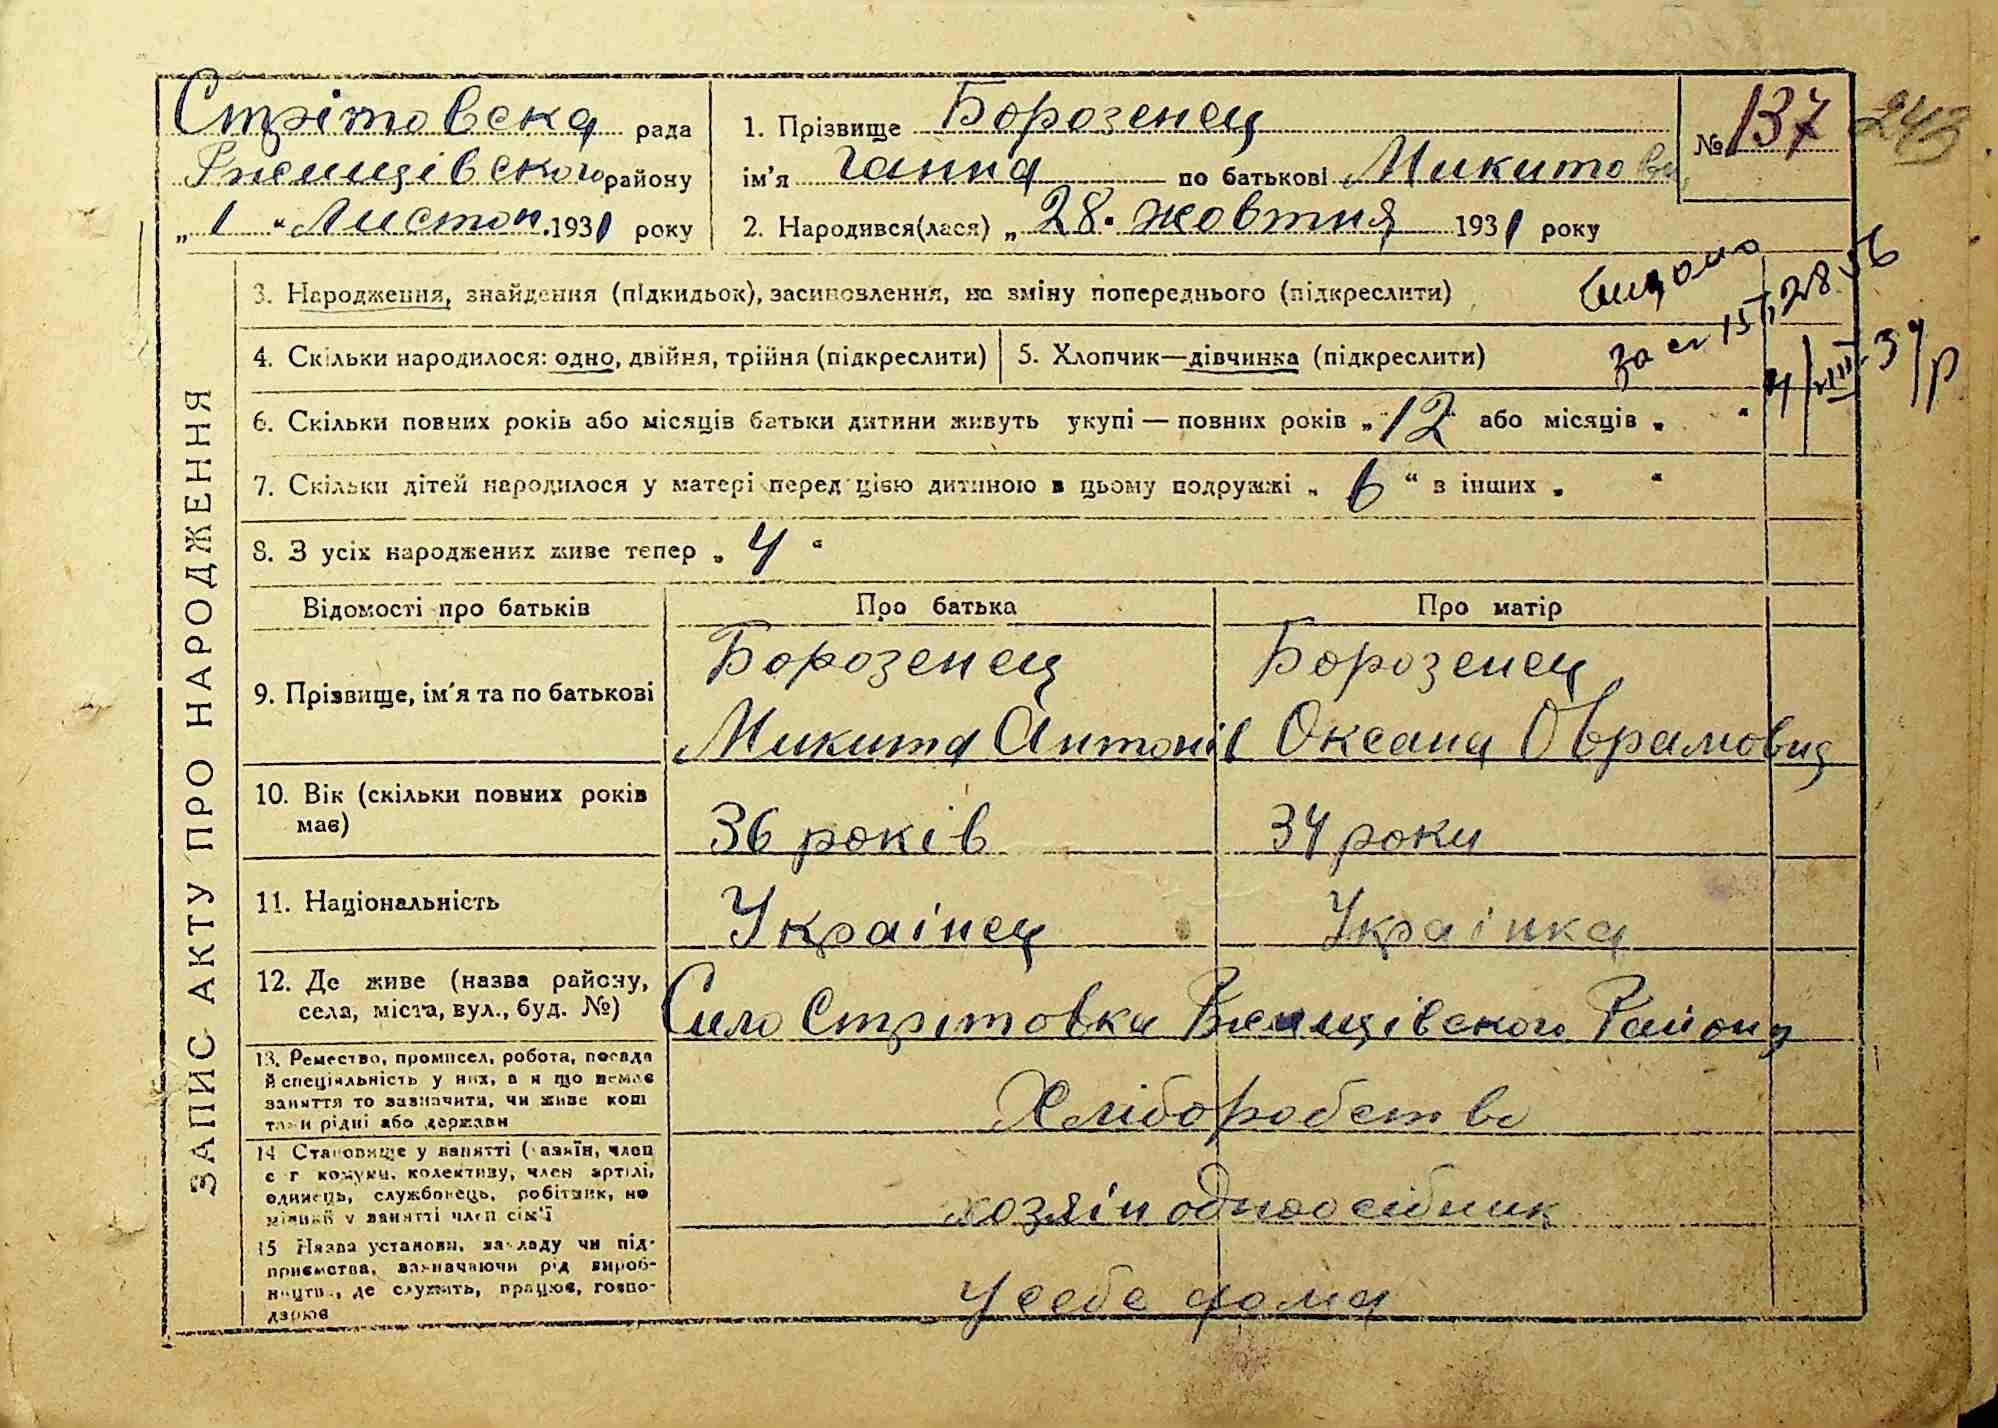 Стрітовска рада
Ржищівского району
„ 1 “ Листоп. 1931 року
1. Прізвище Борозенец
ім'я Ганна по батькові Микитовн
2. Народився(лася) „ 28. жовтня 1931 року
№ 137
243
ЗАПИС АКТУ ПРО НАРОДЖЕННЯ
3. Народження, знайдення (підкидьок), засиновлення, на зміну попереднього (підкреслити)
4. Скільки народилося: одно, двійня, трійня (підкреслити)
5. Хлопчик—дівчинка (підкреслити)
6. Скільки повних років або місяців батьки дитини живуть укупі — повних років „ 12 “ або місяців „ “
7. Скільки дітей народилося у матері перед цією дитиною в цьому подружжі „ 6 “ в інших „ “
8. З усіх народжених живе тепер „ 4 “
Відомості про батьків
Про батька
Про матір
9. Прізвище, ім'я та по батькові
Борозенец
Микита Антонів
Борозенец
Оксана Оврамовна
10. Вік (скільки повних років
має)
36 років
34 роки
11. Національність
Украінец
Украінка
12. Де живе (назва району,
села, міста, вул., буд. №)
Село Стрітовка Ржищівского Району
13. Ремество, промисел, робота, посада
й спеціяльність у них, а я що немає
заняття то зазначити, чи живе кош
тами рідні або держави
Хліборобство
14 Становище у занятті (хазяїн, член
с г комуни, колективу, член артілі,
одинець, службовець, робітник, не
мінний у занятті член сім'ї
хозяін одноосібник
15 Назва установи, закладу чи під-
приємства, зазначаючи рід вироб-
ництва, де служить, працює, госпо-
дарює
У себе дома